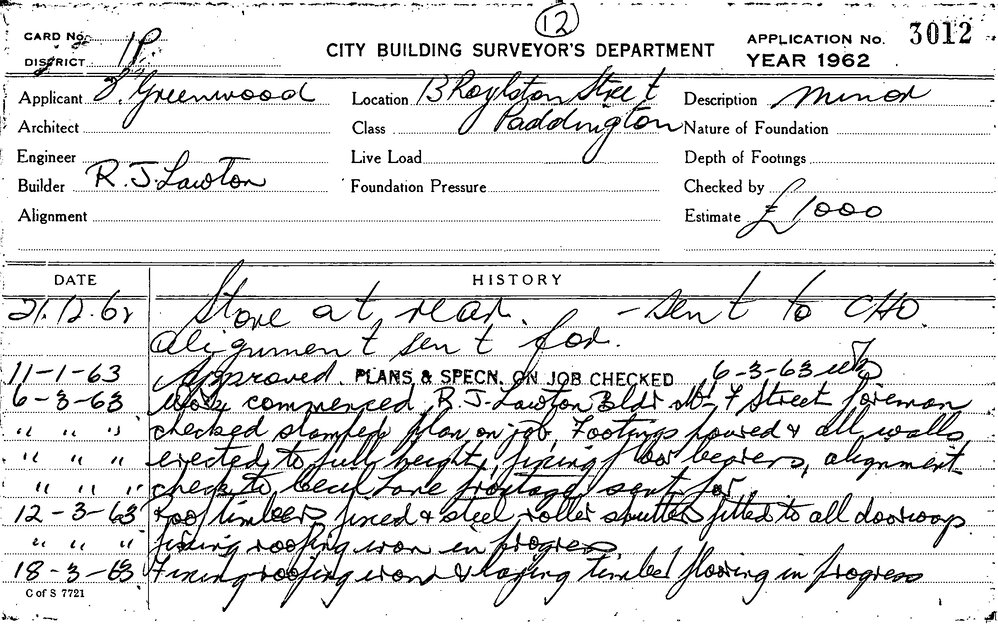 12
CARD No.
DISTRICT 1P
CITY BUILDING SURVEYOR'S DEPARTMENT
APPLICATION No. 3012
YEAR 1962
Applicant J. Greenwood
Location 13 Roylston Street
Description Minor
Architect
Class Paddington
Nature of Foundation
Engineer
Live Load
Depth of Footings
Builder R. J. Lawton
Foundation Pressure
Checked by
Alignment
Estimate £1000
DATE HISTORY
21.12.62 Store at rear. - sent to CHO
alignment sent for.
11-1-63 Approved. PLANS & SPECN. ON JOB CHECKED 6-3-63
6-3-63 Work commenced R. J. Lawton Bldr Mr F Street foreman
" " " checked stamped plan on job, Footings poured & all walls
" " " erected to full height, fixing floor bearers, alignment
" " " check to Lane frontage sent for
12-3-63 Roof timbers fixed & steel roller shutters fitted to all doorways
" " " fixing roofing iron in progress.
18-3-63 Fixing roofing iron & laying timber flooring in progress
C of S 7721